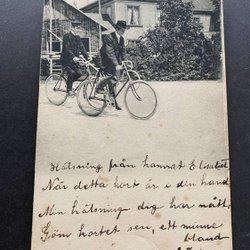 Hälsning från kamrat Elisabet
När detta kort är i din hand
Min hälsning dig har nått,
Göm kortet sen, ett minne
bland